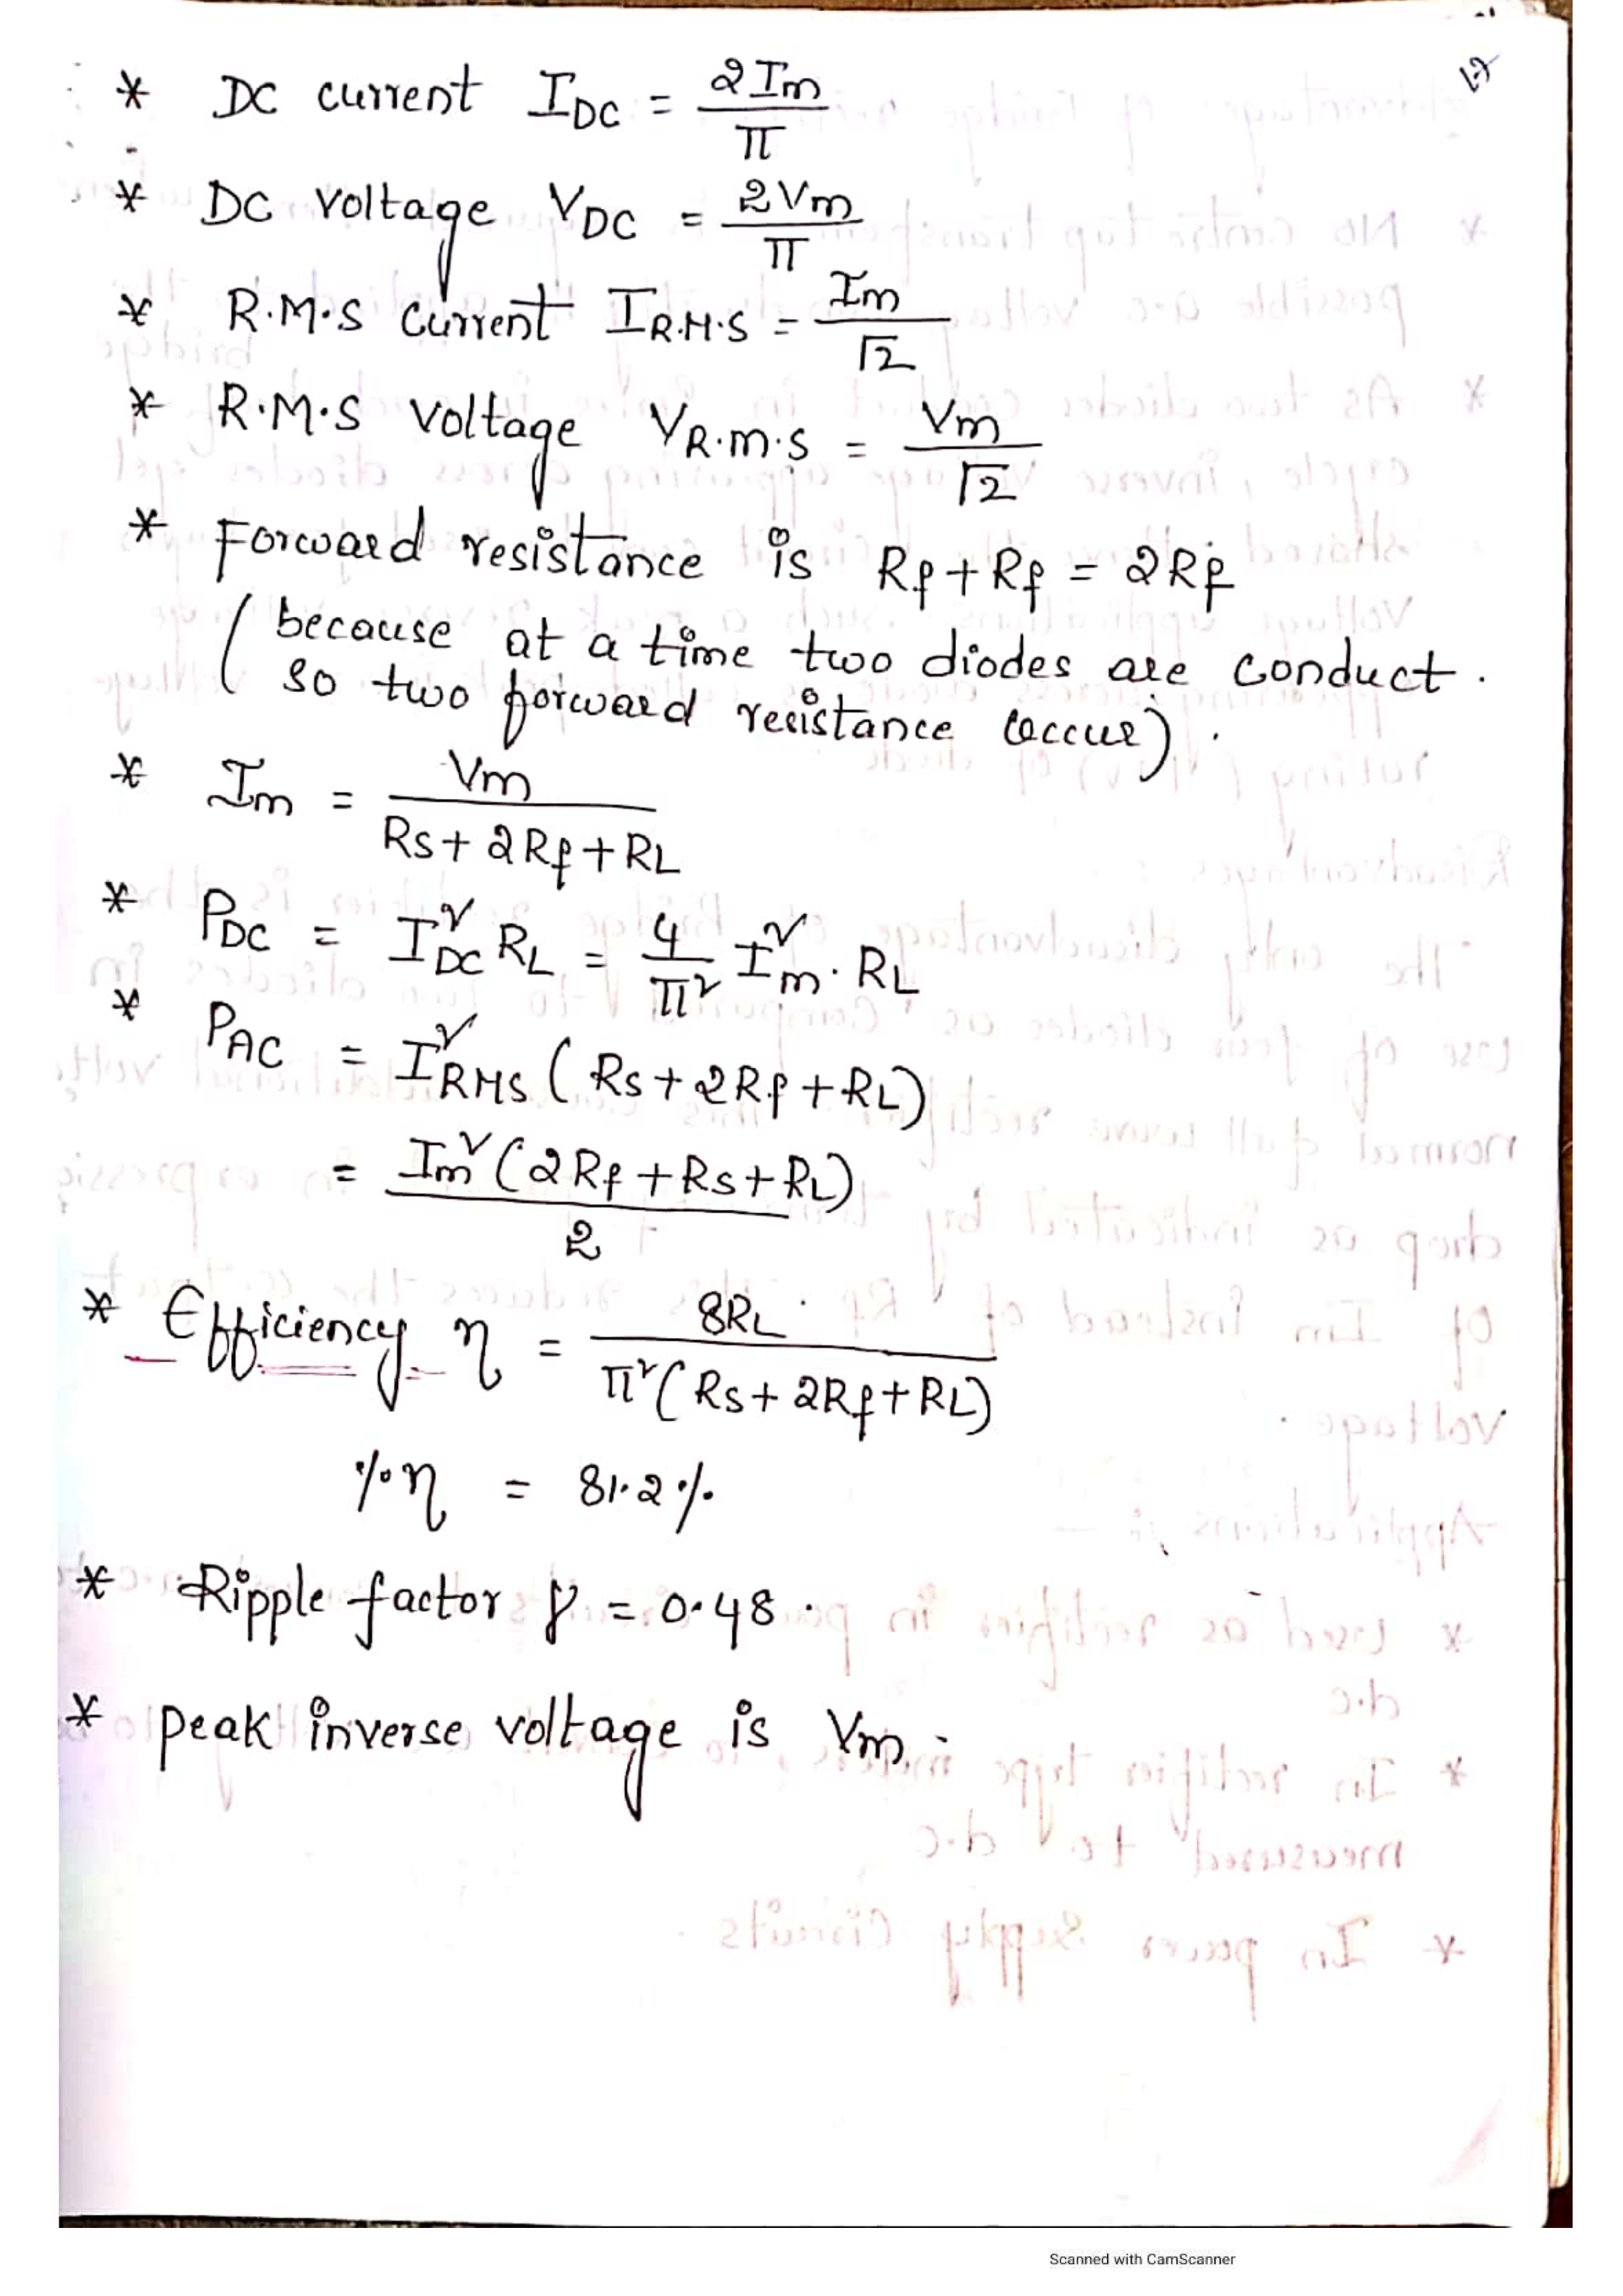 * DC current I_DC = 2Im/π
* DC voltage V_DC = 2Vm/π
* R.M.S current I_R.M.S = Im/√2
* R.M.S voltage V_R.m.s = Vm/√2
* Forward resistance is Rf + Rf = 2Rf
(because at a time two diodes are conduct.
so two forward resistance occur).
* Im = Vm/(Rs + 2Rf + RL)
* P_DC = I²_DC RL = 4/π² I²m · RL
* P_AC = I²_RMS (Rs + 2Rf + RL)
= Im² (2Rf + Rs + RL)/2
* Efficiency η = 8RL/π² (Rs + 2Rf + RL)
%η = 81.2%
* Ripple factor γ = 0.48.
* peak inverse voltage is Vm.
Scanned with CamScanner